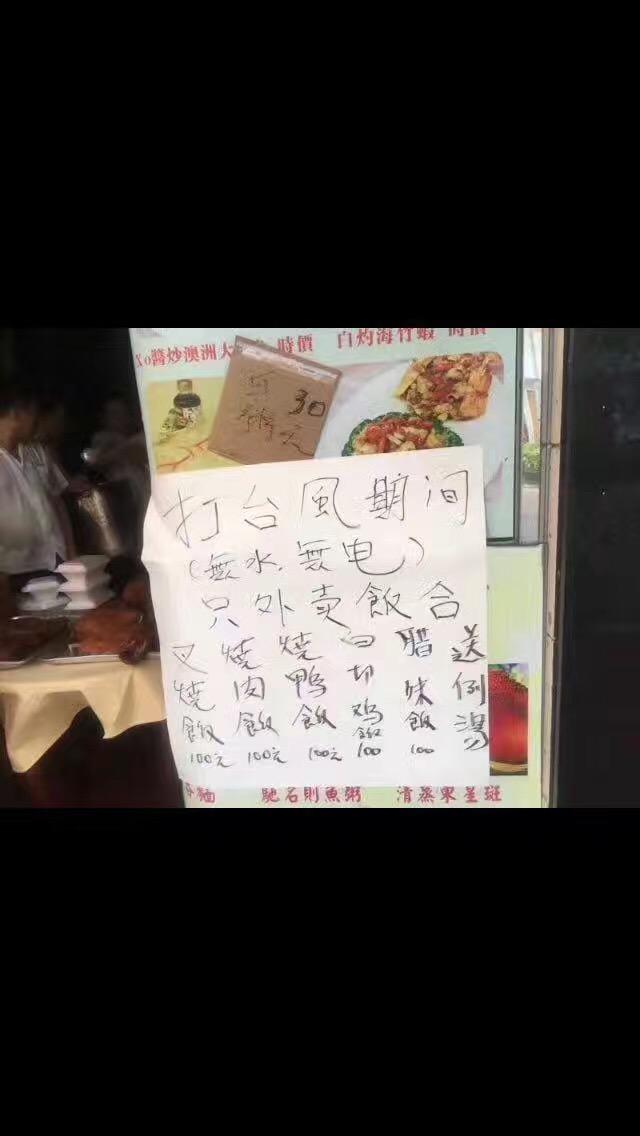 Xo醬炒澳洲大 時價 白灼海竹蝦 時價
30
元
打台風期间
(無水.無电)
只外卖飯合
叉燒飯100元
燒肉飯100元
燒鴨飯100元
白切鸡飯100
腊味飯100
送例湯
麵 馳名則魚粥 清蒸東星斑